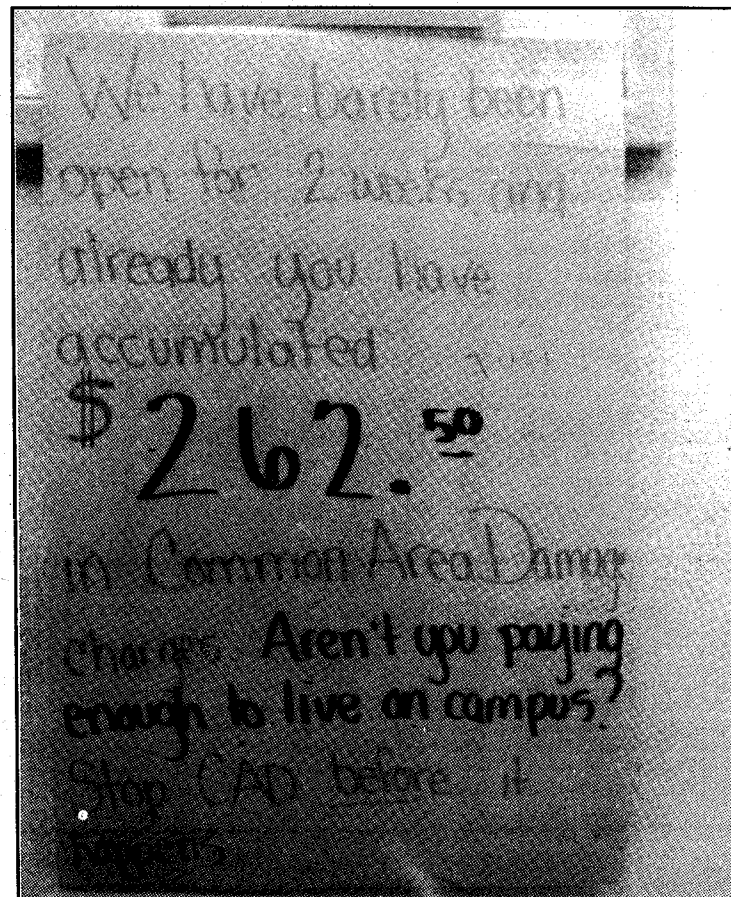 We have barely been
open for 2 weeks and
already you have
accumulated
$262.50
in Common Area Damage
charges. Aren't you paying
enough to live on campus?
Stop CAD before it
happens.